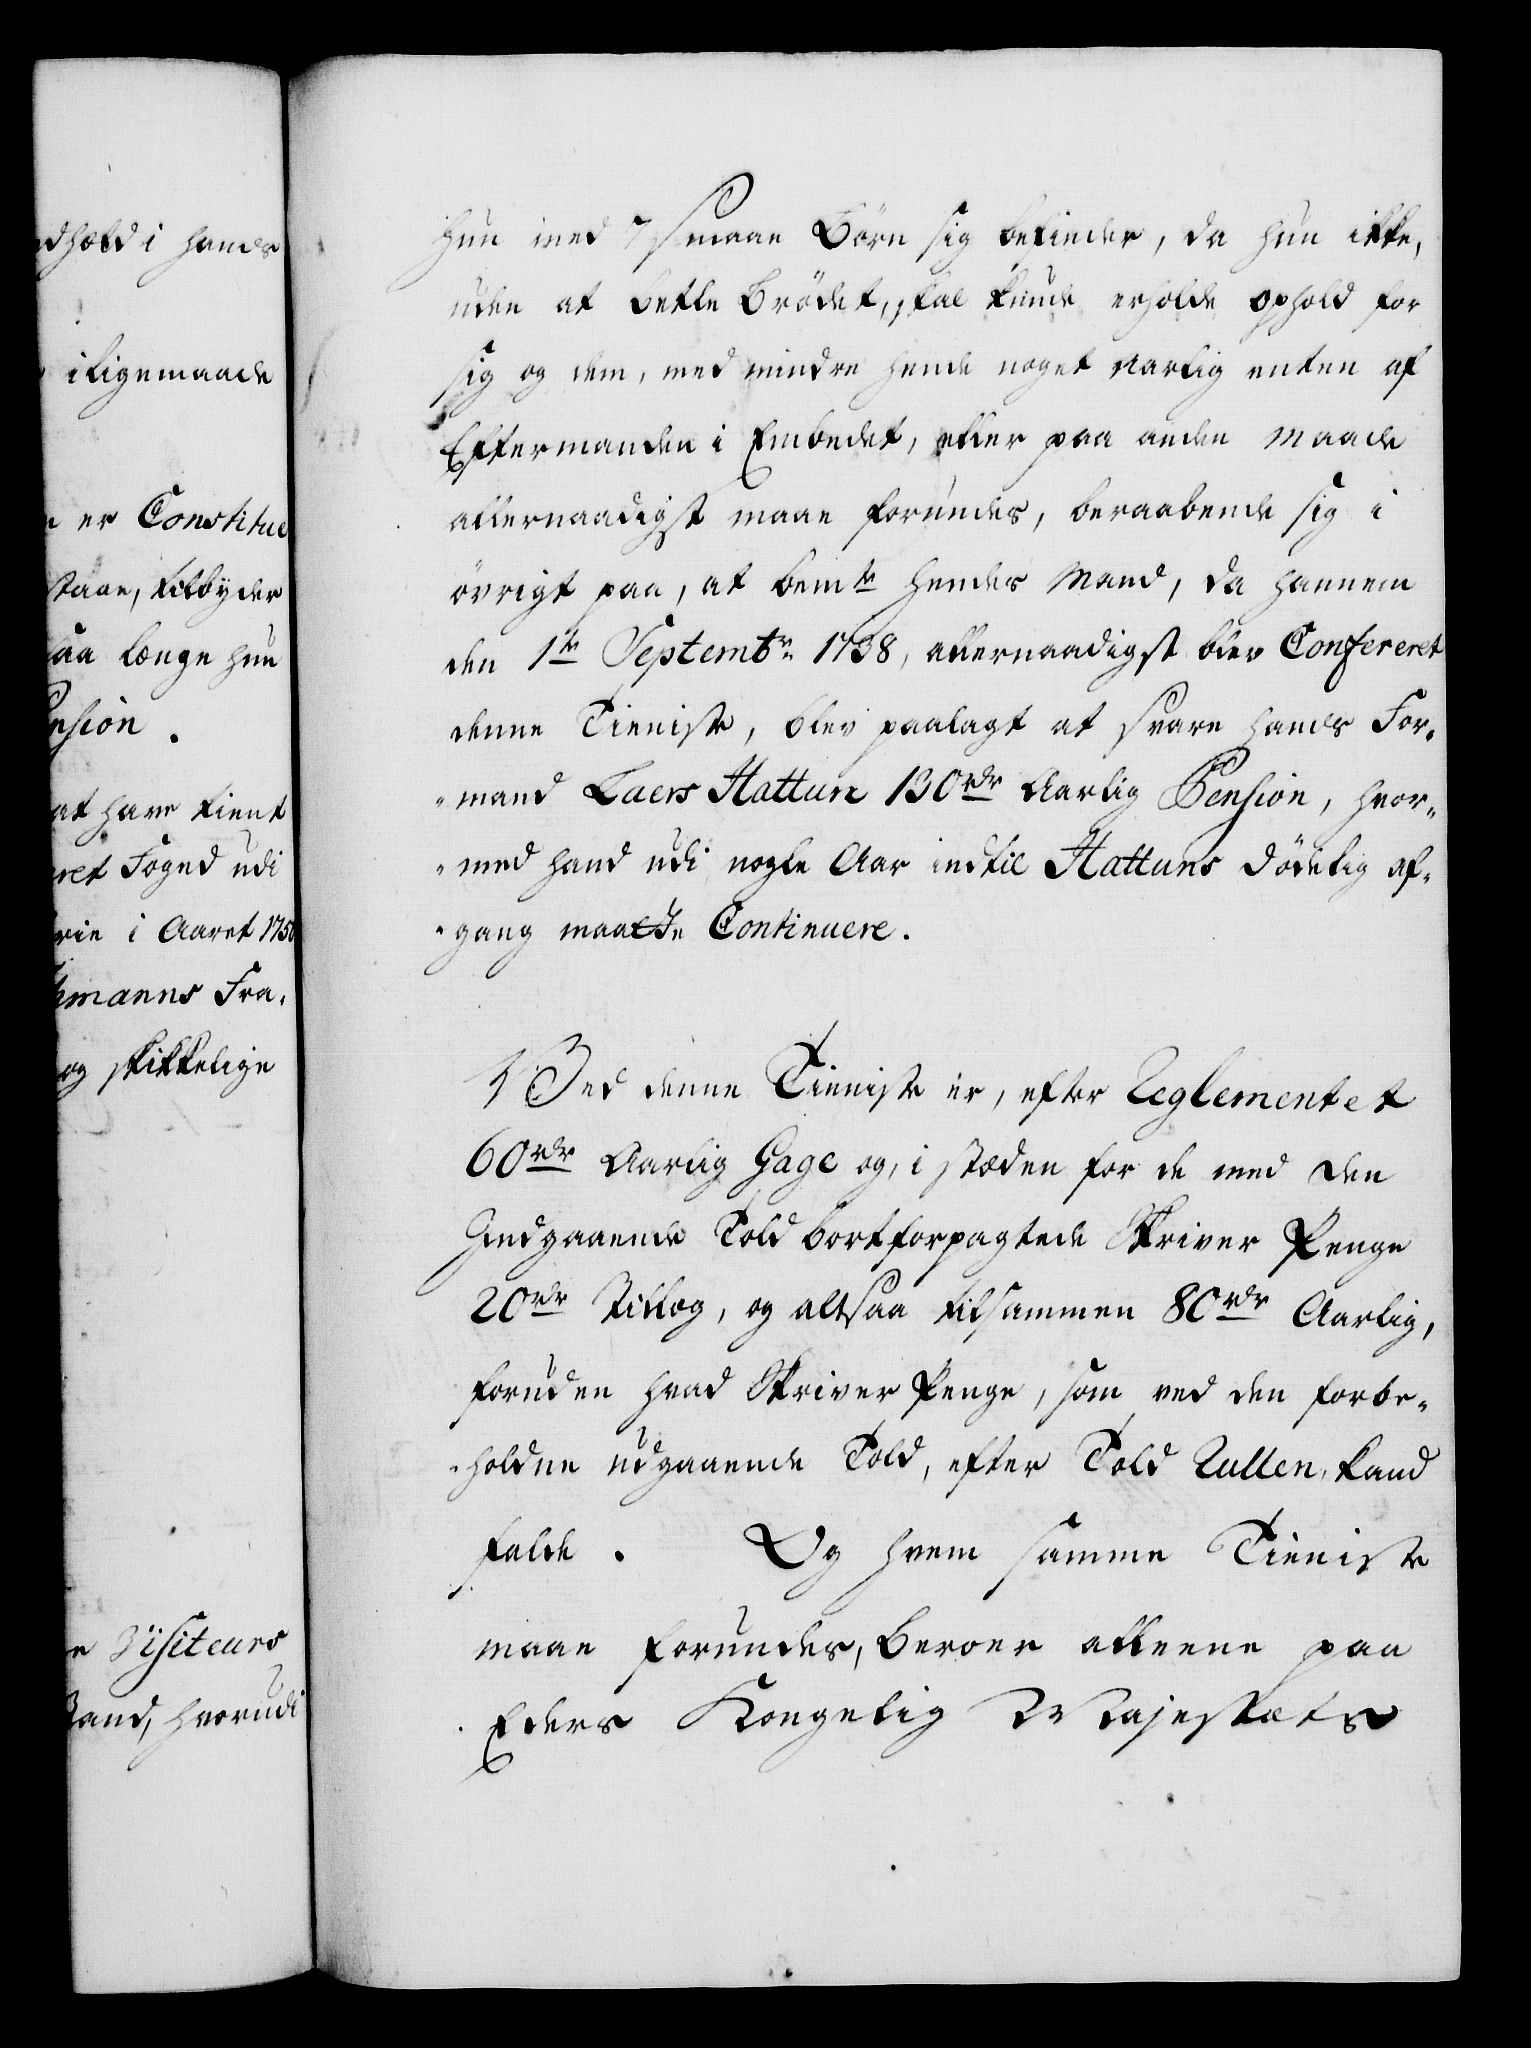 dhold i hands
iligemaade
er Constitue
staae, tilbyder
saa længe hun
nsion.
at have tient
ret Foged udi
rie i Aaret 175
hmanns Fra-
og skikkelige
Visiteurs
Land, hvorudi
hun med 7 smaae Børn sig befinder, da hun ikke,
uden at betle Brødet, skal kunde erholde ophold for
sig og dem, med mindre hende noget aarlig enten af
Eftermanden i Embedet, eller paa anden Maade
allernaadigst maae forundes, beraabende sig i
øvrigt paa, at bemte hendes Mand, da hannem
den 1te Septembr: 1738, allernaadigst blev Confereret
denne Tieniste, blev paalagt at svare hands For-
-mand Laers Hattun 130 rdr Aarlig Pension, hvor-
-med hand udi nogle Aar indtil Hattuns dødelig af-
-gang maatte Continuere.
Ved denne Tieniste er, efter Reglementet
60 rdr Aarlig Gage og, i stæden for de med den
Indgaaende Told bortforpagtede Skriver Penge
20 rdr Tillæg, og altsaa tilsammen 80 rdr Aarlig,
foruden hvad Skriver Penge, som ved den forbe-
-holdne udgaaende Told, efter Told Rullen, kand
falde. Og hvem samme Tieniste
maae forundes, beroer alleene paa
Eders Kongelig Majestæts